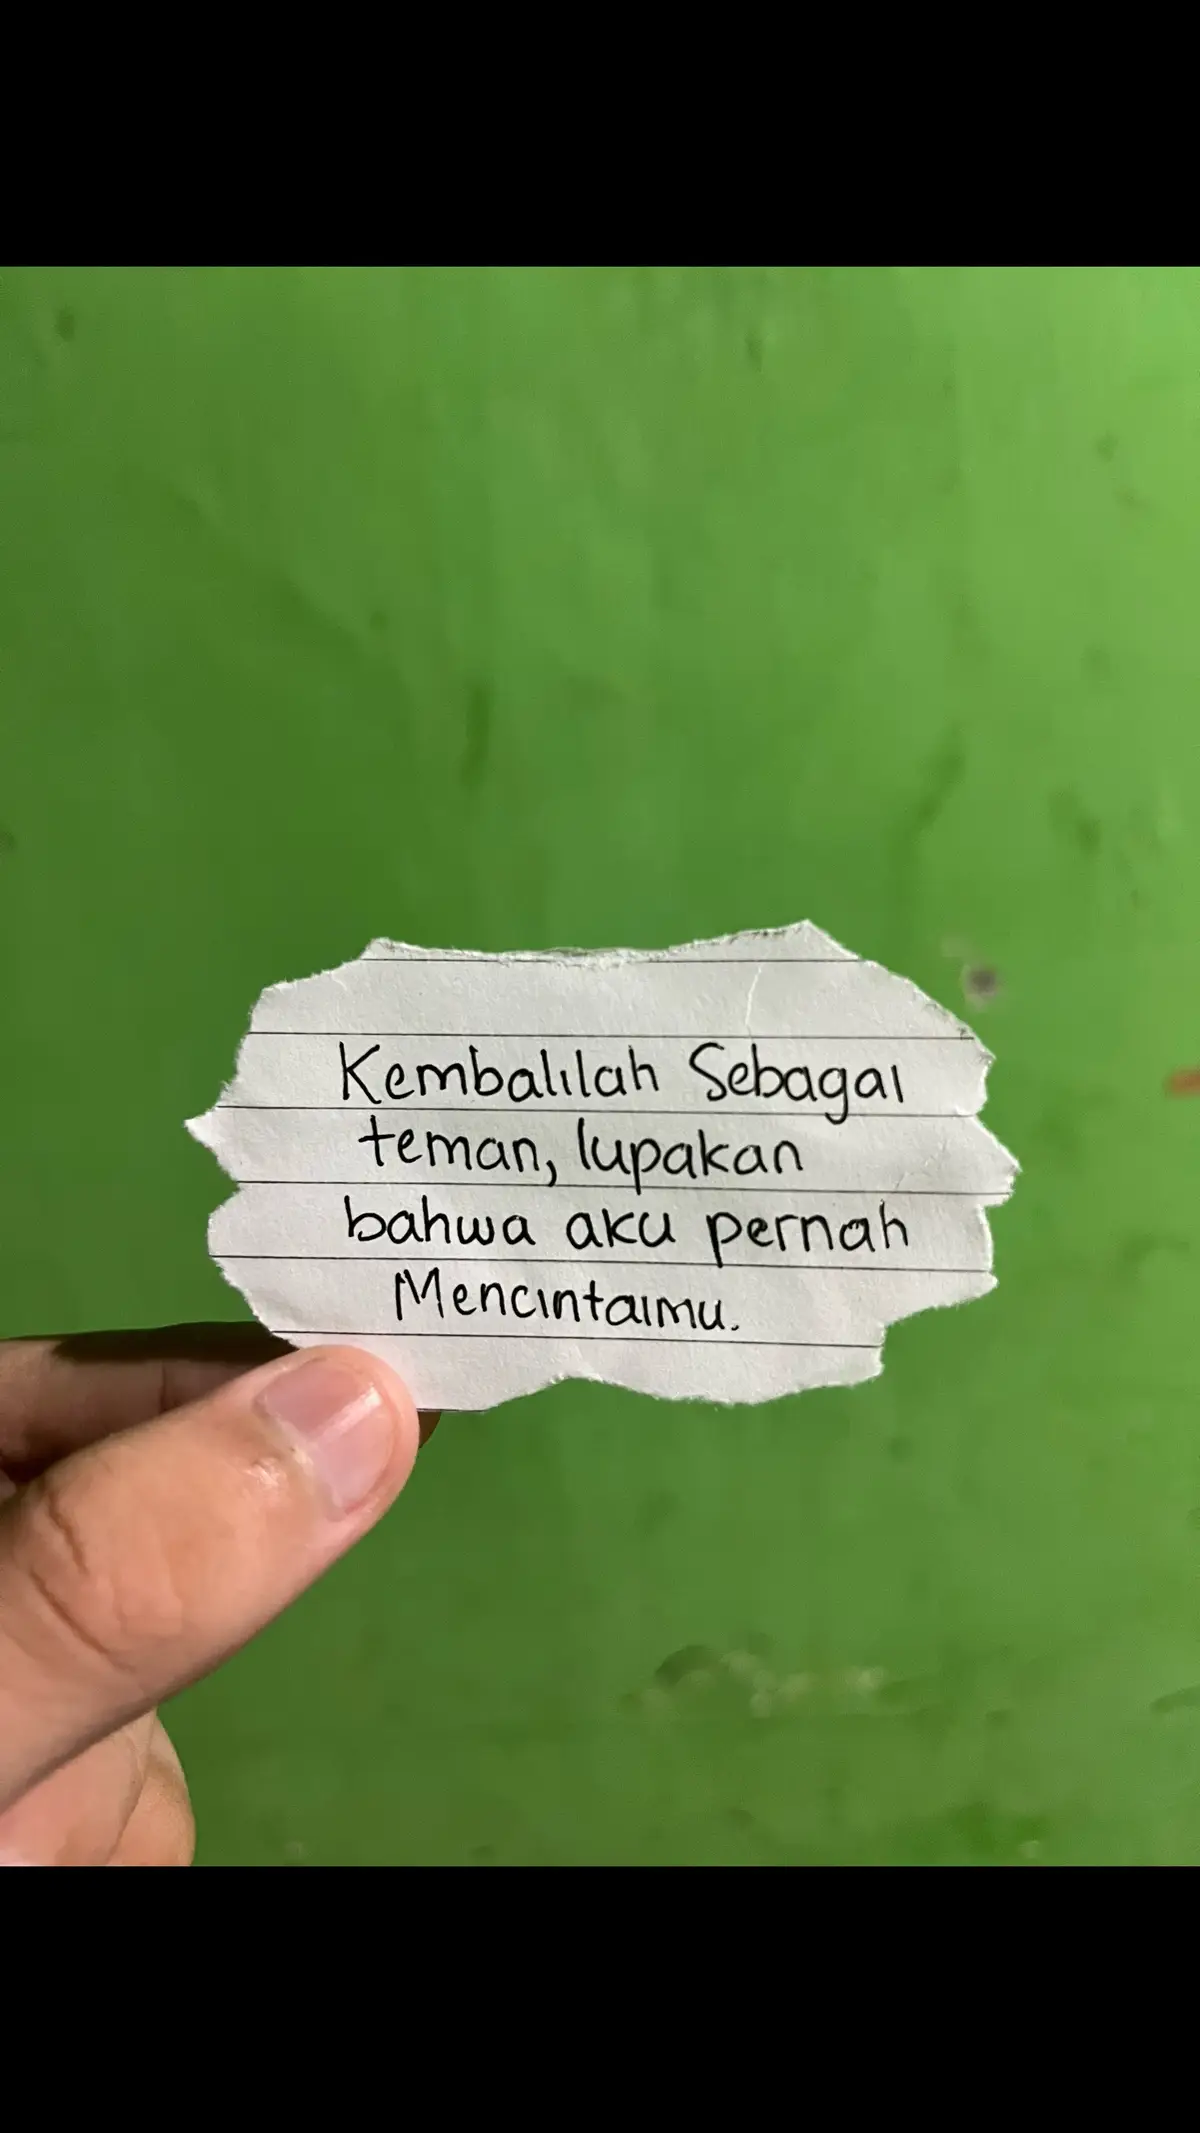 Kembalilah Sebagai
teman, lupakan
bahwa aku pernah
Mencintaimu.